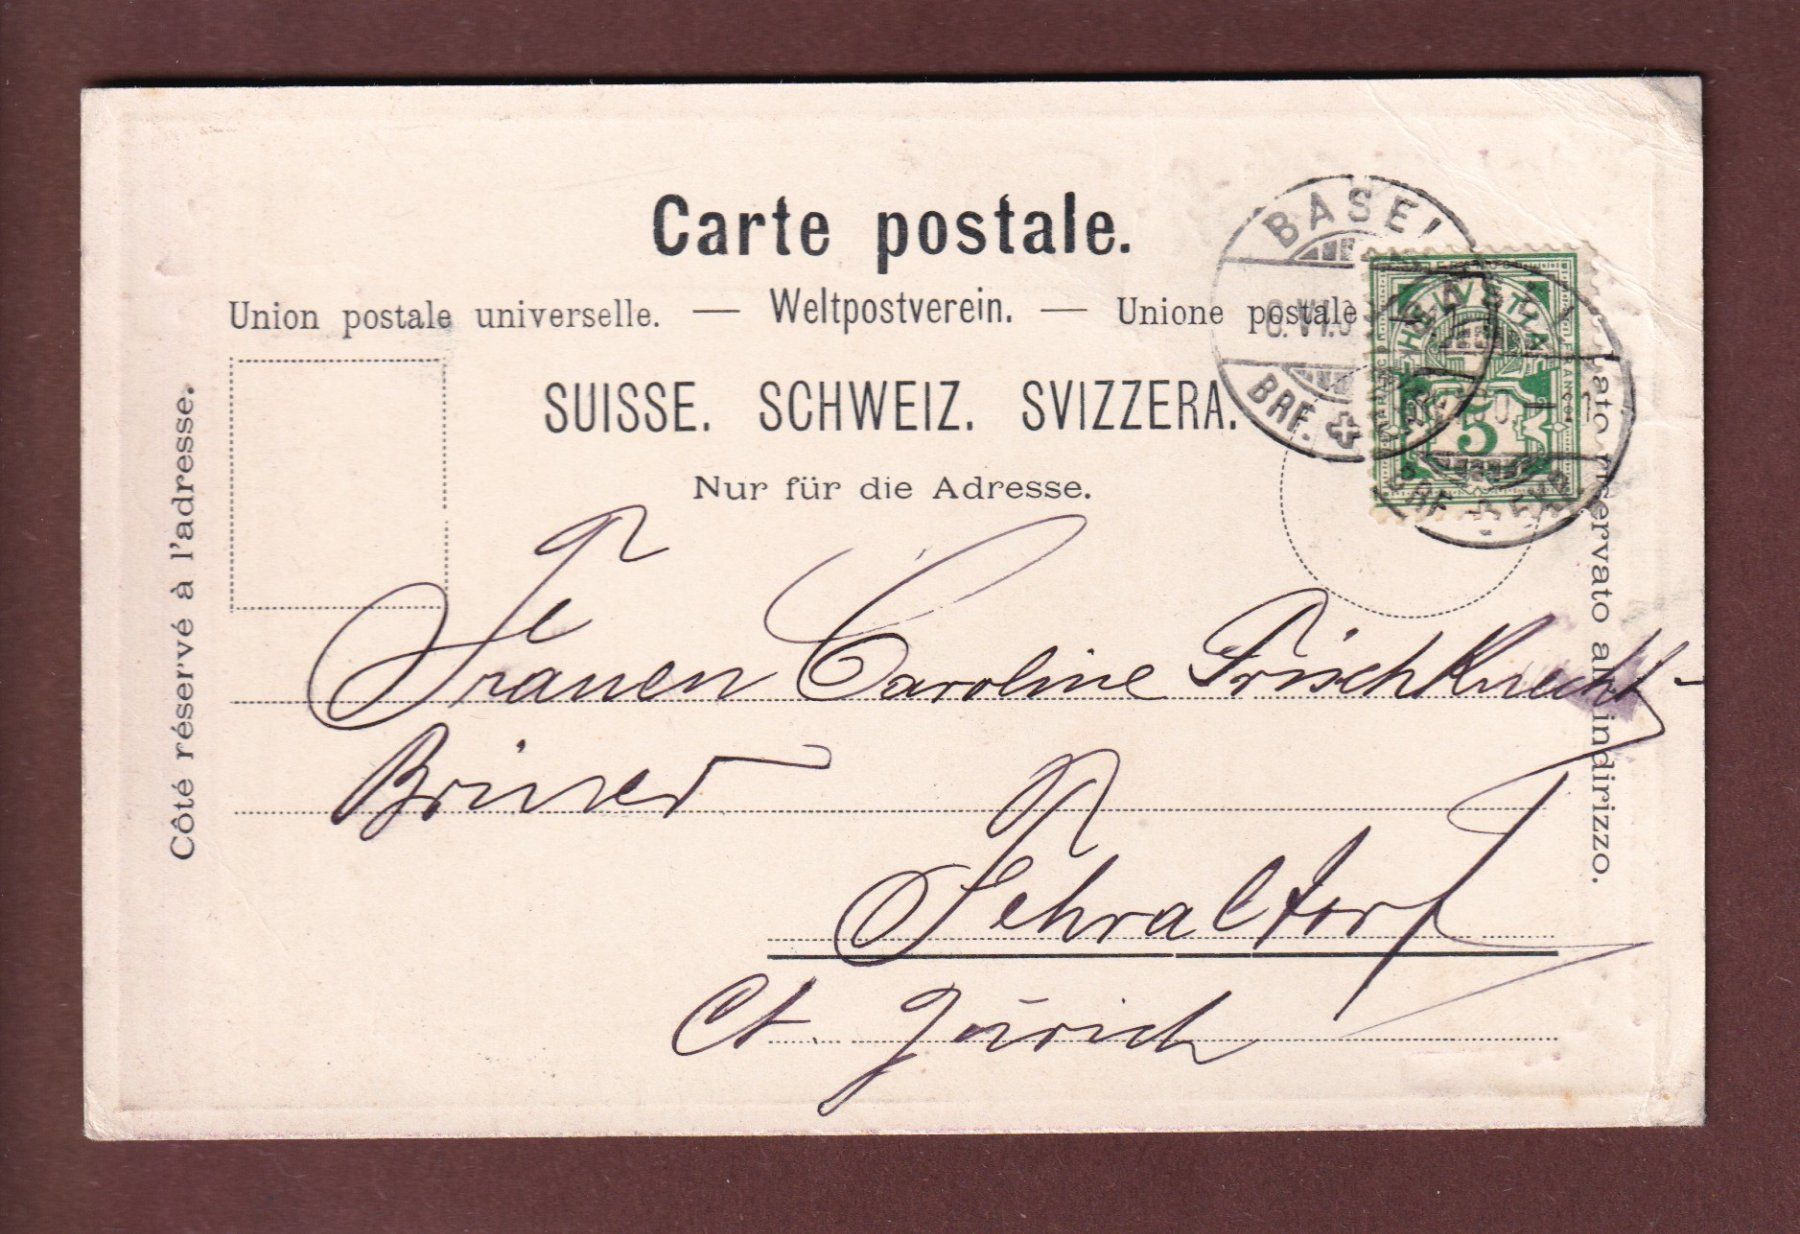 Carte postale.
Union postale universelle. — Weltpostverein. — Unione postale
SUISSE. SCHWEIZ. SVIZZERA.
Nur für die Adresse.
Côté réservé à l'adresse.
lato riservato all'indirizzo.
BASEL
BRF.
HELVETIA
FRANCO
5
Frauen Caroline Frischknecht-
Briner
Fehraltorf
Ct. Zürich